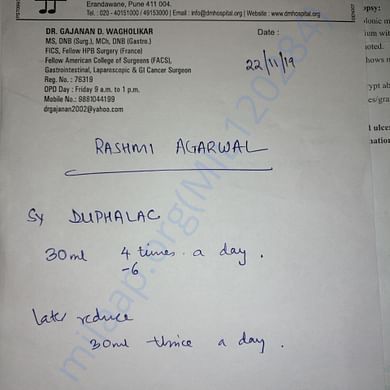 Erandawane, Pune 411 004.
Tel. : 020 - 40151000 / 49153000 | Email : info@dmhospital.org | Website : www.dmhospital.org
DR. GAJANAN D. WAGHOLIKAR
MS, DNB (Surg.), MCh, DNB (Gastro.)
FICS, Fellow HPB Surgery (France)
Fellow American College of Surgeons (FACS),
Gastrointestinal, Laparoscopic & GI Cancer Surgeon
Reg. No. : 76319
OPD Day : Friday 9 a.m. to 1 p.m.
Mobile No.: 9881044199
drgajanan2002@yahoo.com
Date :
22/11/19
RASHMI AGARWAL
Sy DUPHALAC
30ml 4 times a day.
-6
Later reduce
30ml thrice a day.
milaap.org
opsy:
lonic m
ium wit
noted.
hows n
rypt ab
es/gra
l ulcer
nation